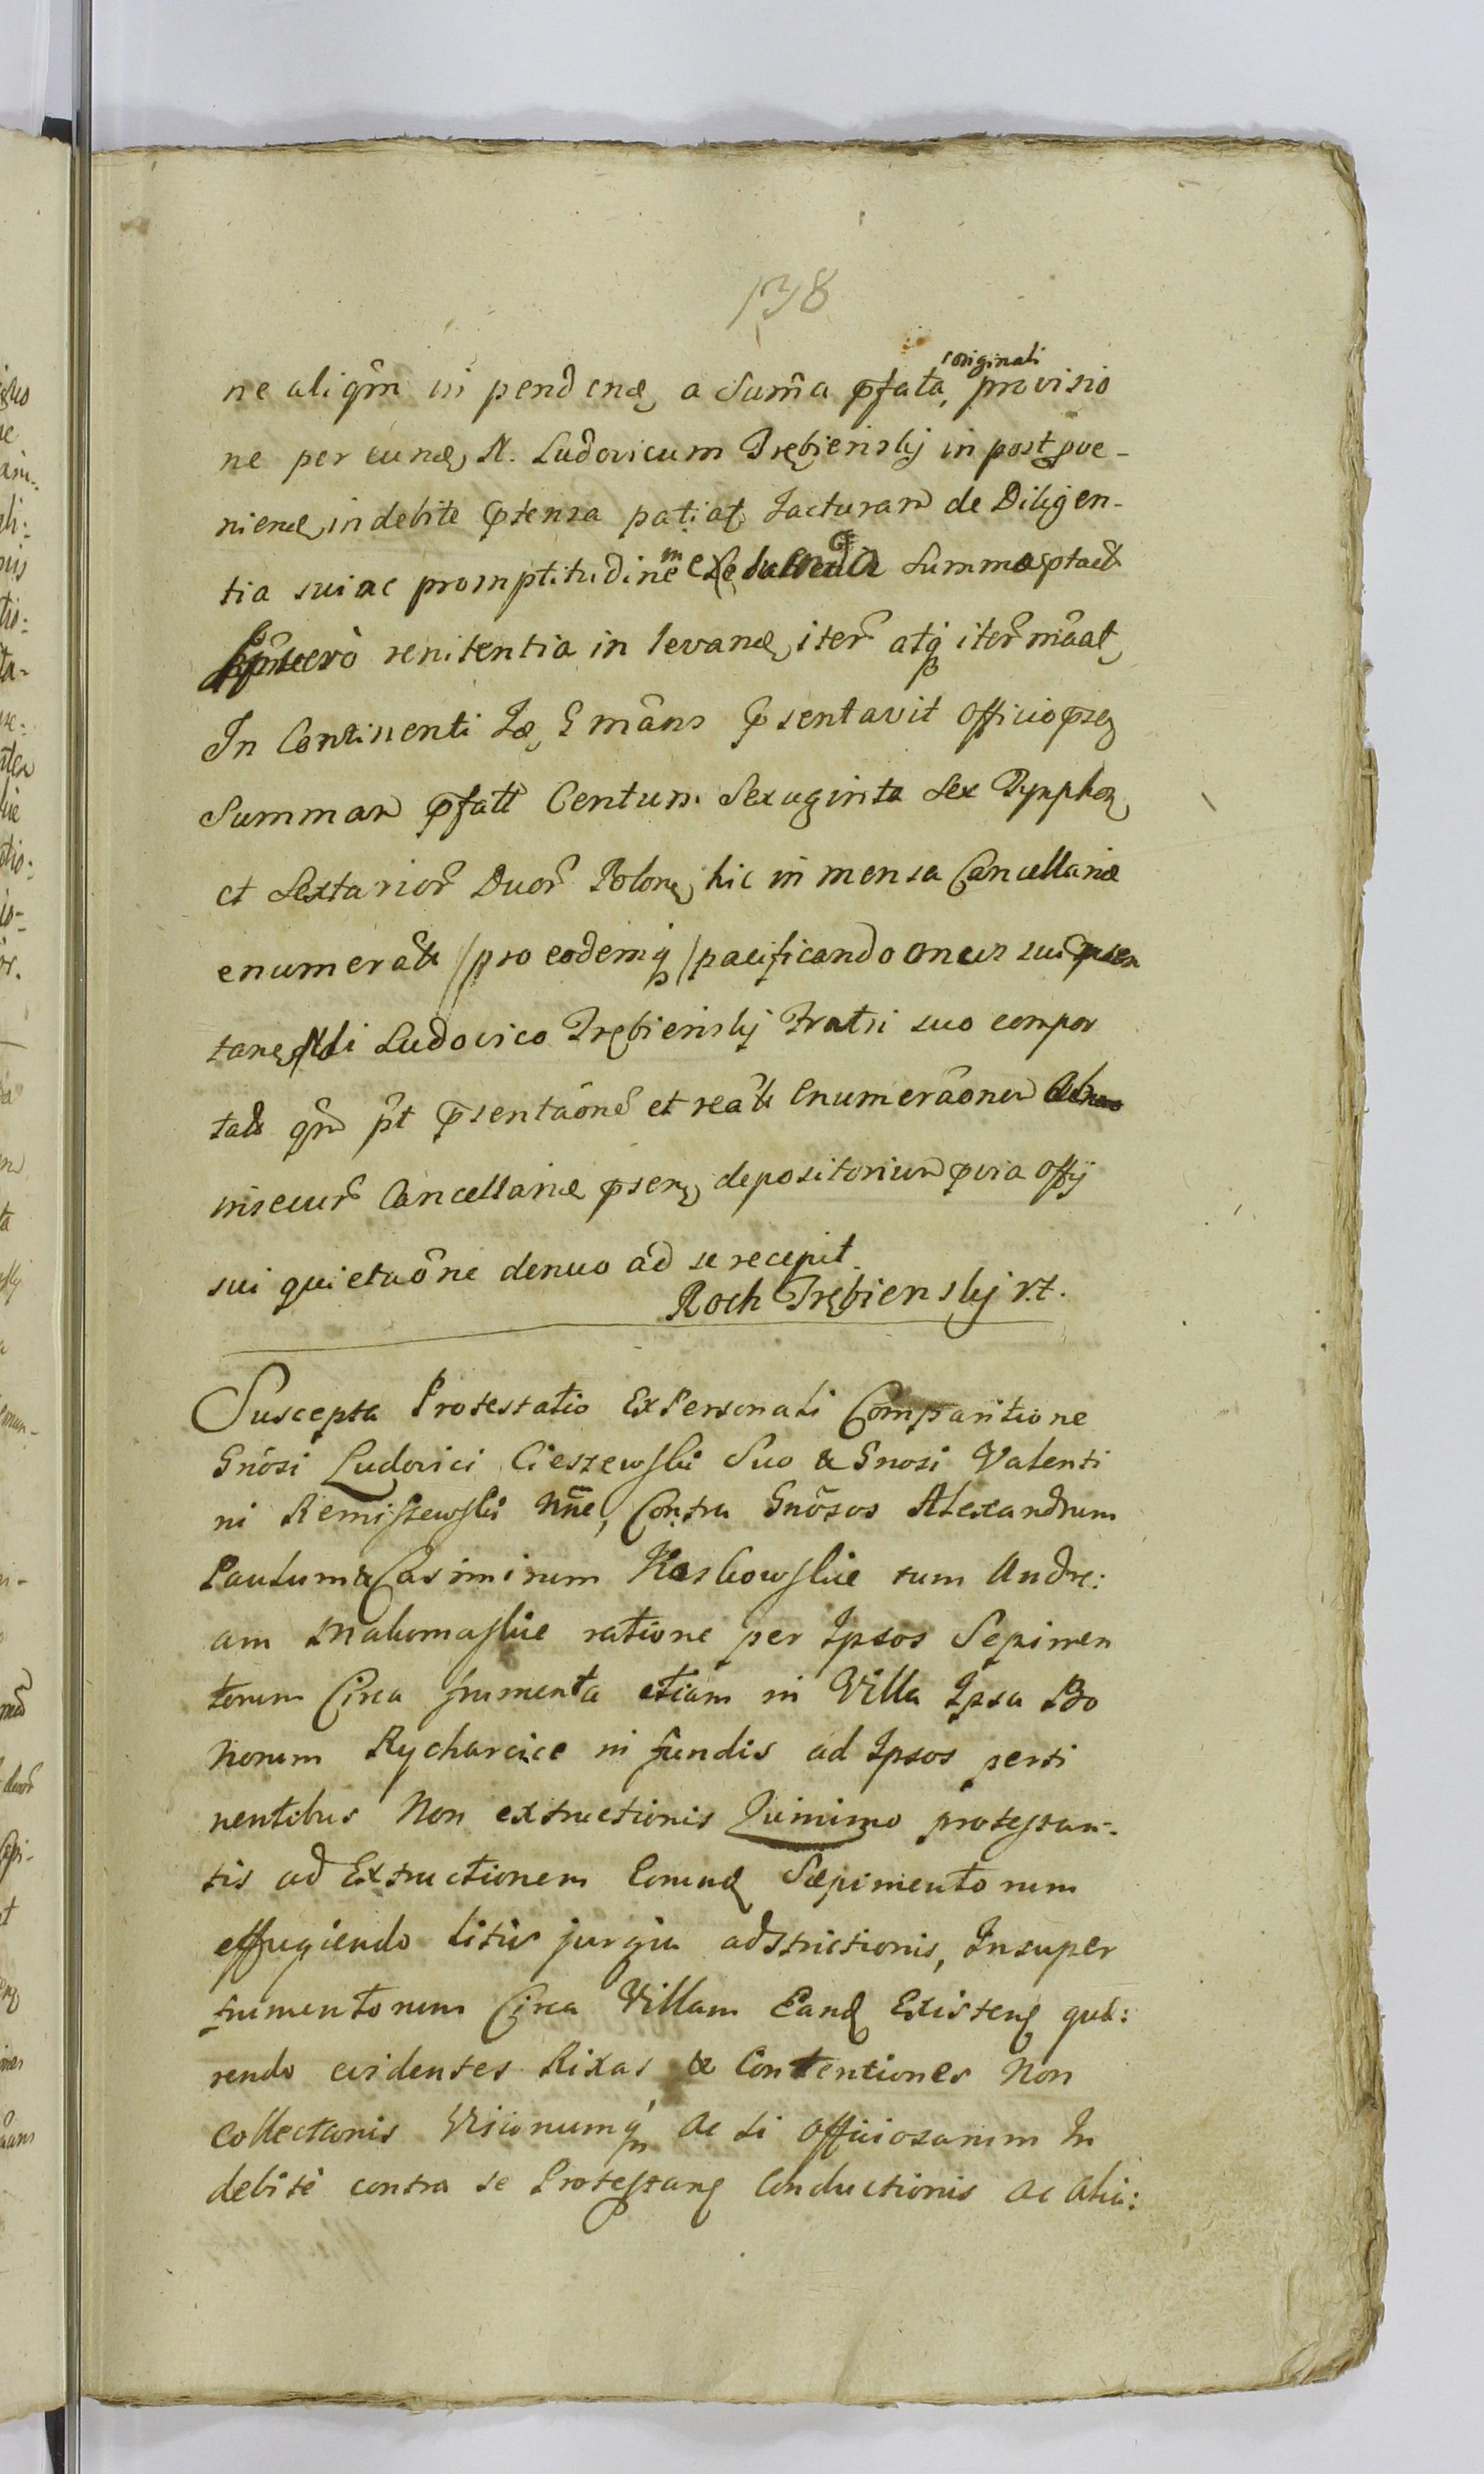 138
originali
ne aliqm̃ in pendend, a Sum̃a pfata, provisio
ne per eund, N. Ludovicum Trębienskij in post pve-
niend, indebite ptensa patiat, Jacturam de Diligen-
tia sui ac promptitudine in Summa
vero renitentia in levand, iter̃ atq iter̃ mãat,
In Continenti Id, Smãns psentavit officio psen
Summam pfatt Centum Sexaginta Sex Tynphon,
et Sextarior̃ Duor̃ Polon, hic in mensa Cancellariæ
enumeratt /pro eodemq /pacificando onus sui
tand, Nli Ludovico Trębienskij Fratri suo compor
tatt qm̃ pt psentaõne et realt Enumeraõnem
insecur̃ Cancellariæ psen, depositorium pvia offij
sui quietaõne denuo ad se recepit.
Roch Trębienskij r.z.
Suscepta Protestatio Ex Personali Comparitione
Gnõsi Ludovici Cieszewski Suo & Gnosi Valenti
ni Remiszewski Nñe, Contra Gnõsos Alexandrum
Paulum & Casimirum Koskowskie tum Andre:
am Makomaskie ratione per Ipsos Sepimen
torum Circa frumenta etiam in Villa Ipsa Bo
norum Rycharcice in fundis ad Ipsos perti
nentibus Non extructionis Quinimo protestan-
tis ad Extructionem Eorund Sæpimentorum
effugiendo litis jurgia adstrictionis, Insuper
frumentorum Circa Villam Eand Existen quæ:
rendo evidentes Rixas & Contentiones Non
Collectionis Visionumq Ac si Officiosarum In
debite contra se Protestang Conductionis Ac Alia: